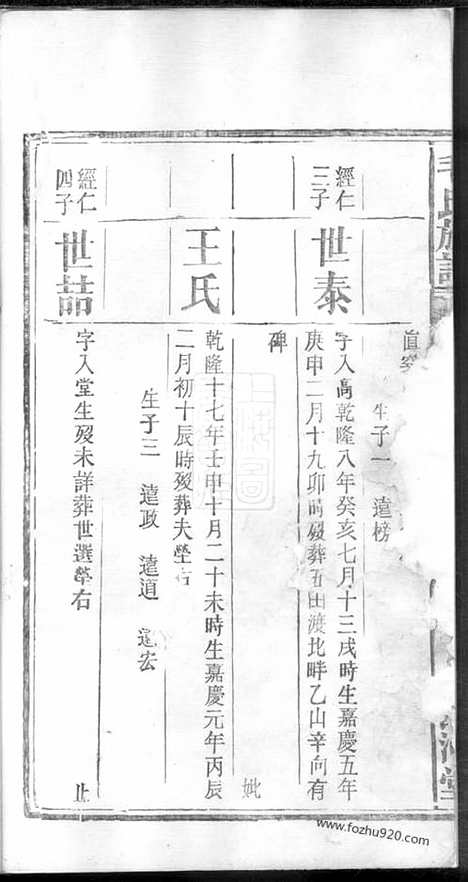 毛氏族譜
直穿
生子一 遠榜
經仁三子
世泰
字入高乾隆八年癸亥七月十三戌時生嘉慶五年
庚申二月十九卯時歿葬石田渡北畔乙山辛向有
碑
妣
王氏
乾隆十七年壬申十月二十未時生嘉慶元年丙辰
二月初十辰時歿葬夫塋右
生子三 遠政 遠道 遠宏
經仁四子
世喆
字入堂生歿未詳葬世選塋右
止
www.fozhu920.com